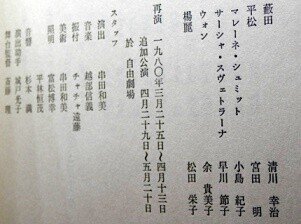 藪田 清川 幸治
平松 宮田 明
マレーネ・シュミット 小島 紀子
サーシャ・スヴェトラーナ 早川 節子
ウォン 余 貴美子
楊麗 松田 栄子
再演 一九八〇年三月二十五日〜四月十三日
追加公演 四月二十九日〜五月二十日
於 自由劇場
スタッフ
演出 串田和美
音楽 越部信義
振付 チャチャ遠藤
美術 串田和美
照明 富松博幸
平林恒茂
音響 杉本 満
演出助手 城戸光子
舞台監督 斉藤